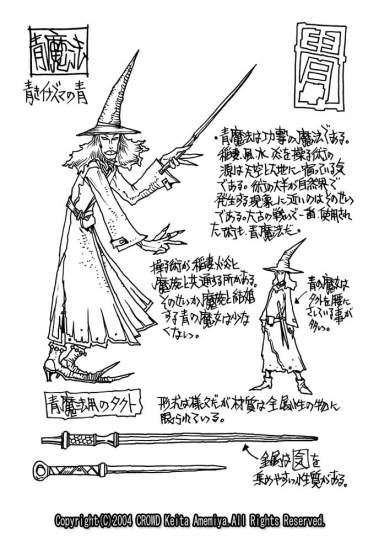 青魔法
青きイナズマの青
青
・青魔法は攻撃の魔法である。
稲妻、風、水、炎を操る術の
源は天空と大地に宿っている気
である。術の大半が自然界で
発生する現象に近いのはそのせい
である。太古の戦いで一番使用され
た術も、青魔法だ。
操る術が稲妻や炎と
魔族と共通する所がある。
そのせいか魔族と結婚
する青の魔女は少な
くない。
青の魔女は
タクトを腰に
さしている事が
多い。
青魔法用のタクト
形状は様々だが材質は金属性の物に
限られている。
金属は気を
集めやすい性質がある。
Copyright(C)2004 CROWD Keita Amemiya.All Rights Reserved.